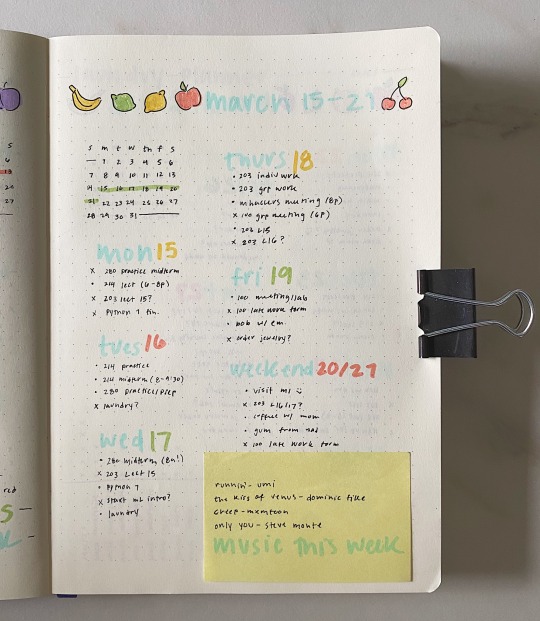 march 15-21
s m t w th f s
— 1 2 3 4 5 6
7 8 9 10 11 12 13
14 15 16 17 18 19 20
21 22 23 24 25 26 27
28 29 30 31
mon 15
x 280 practice midterm
x 214 lect (6-8p)
x 203 lect 15?
x Python 7 fin.
tues 16
• 214 practice
• 214 midterm (8-9:30)
• 280 practice/prep
x laundry?
wed 17
• 280 midterm (8a!)
x 203 Lect 15
• Python 7
x start ml intro?
• laundry
thurs 18
• 203 indiv work
• 203 grp work
• mhackers meeting (8p)
x 100 grp meeting (6p)
• 203 L15
x 203 L16?
fri 19
• 100 meeting/lab
x 100 late work form
• bob w/ em
x order jewelry?
weekend 20/21
• visit m!
x 203 L16/17?
• coffee w/ mom
• gum from dad
x 100 late work form
runnin'- umi
the kiss of venus- dominic fike
creep- mxmtoon
only you- steve monite
music this week
s
6
13
20
27
red